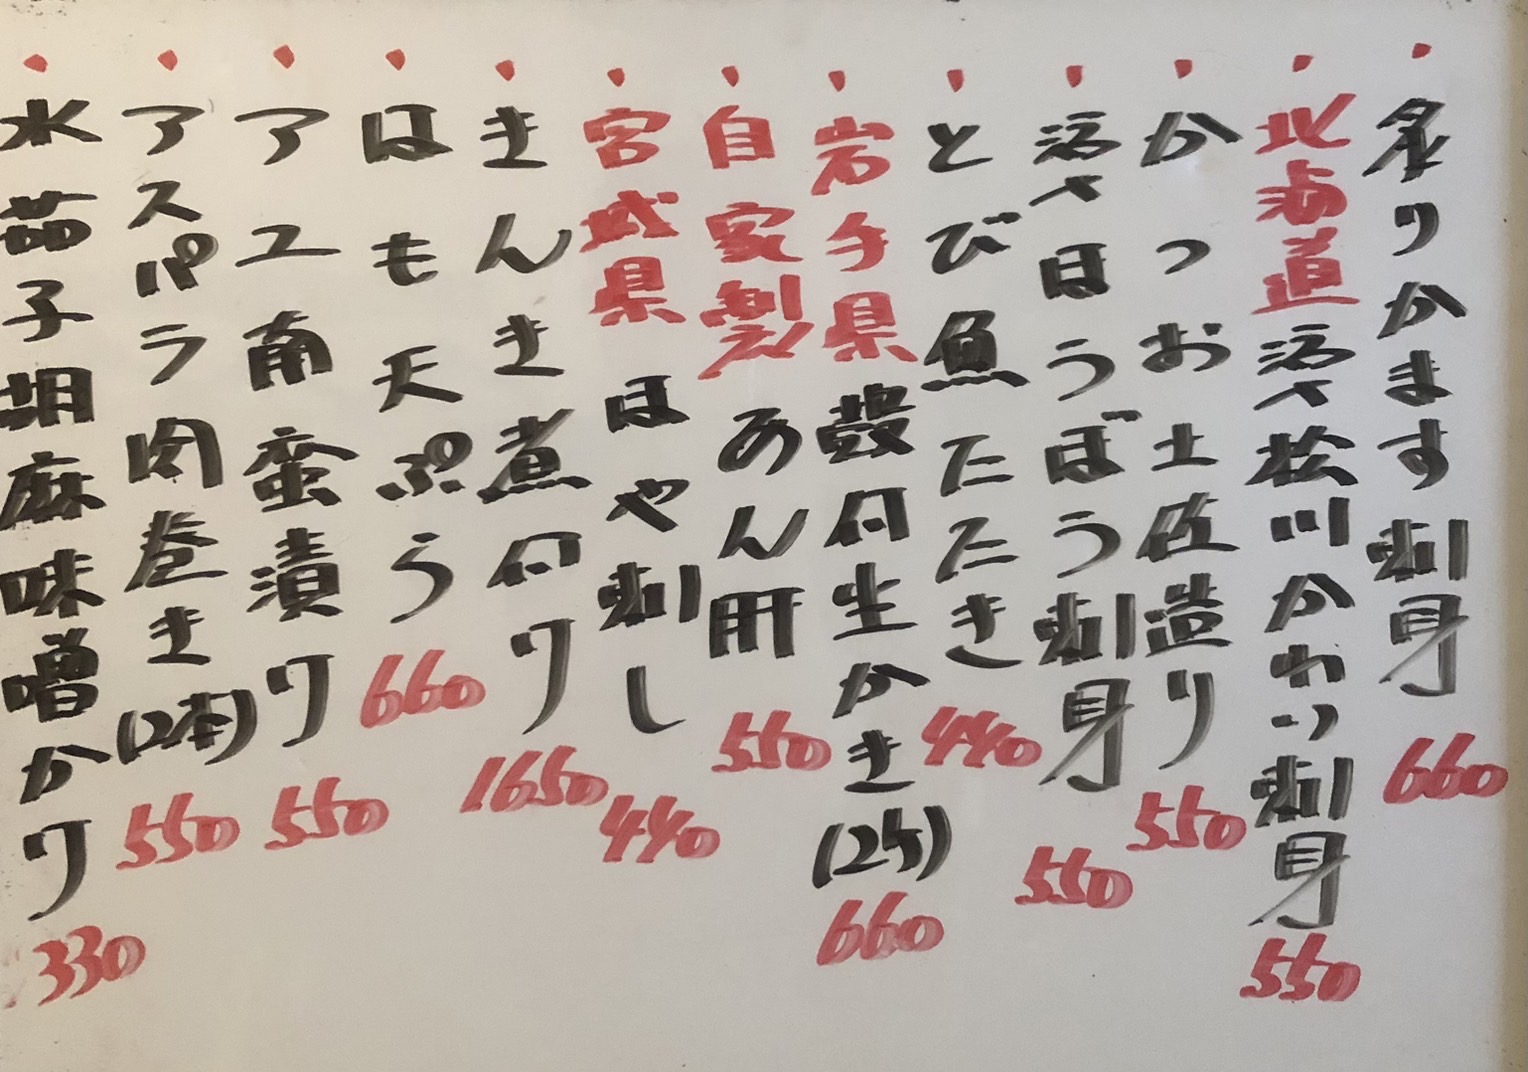 ・炙りかます刺身 660
・北海道活〆松川かれい刺身 550
・かつお土佐造り 550
・活〆ほうぼう刺身 550
・とび魚たたき 440
・岩手県殻付生かき(2ケ) 660
・自家製あん肝 550
・宮城県ほや刺し 440
・きんき煮付け 1650
・はも天ぷら 660
・アユ南蛮漬け 550
・アスパラ肉巻き(2本) 550
・水茄子胡麻味噌かけ 330